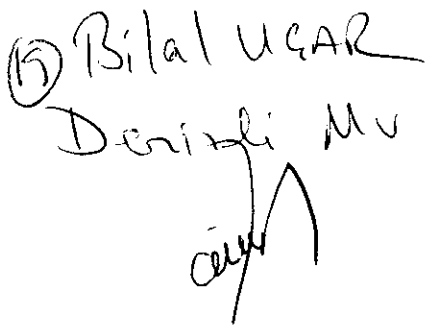 19 Bilal UÇAR
Denizli Mv